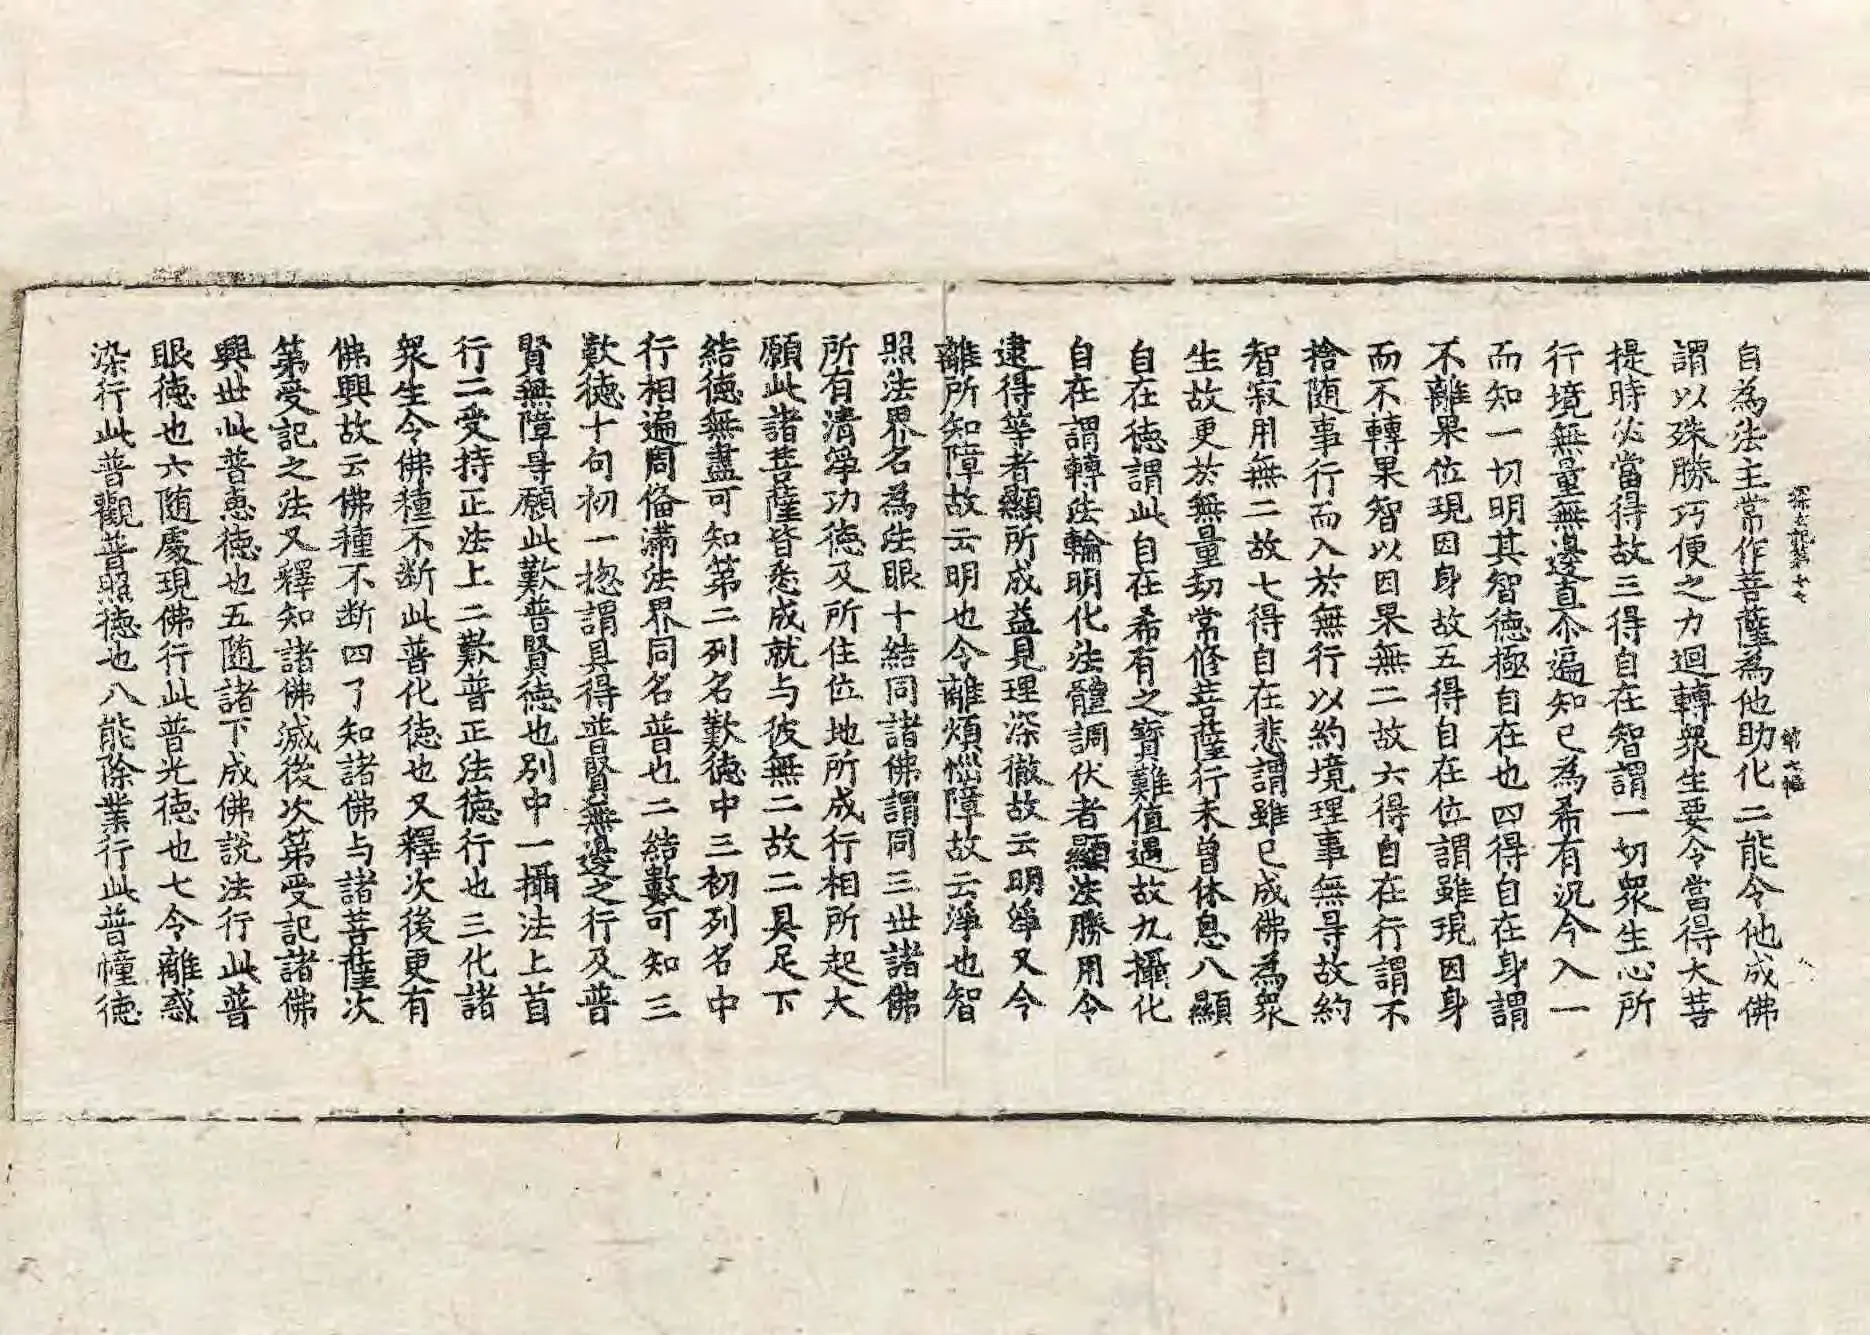 探玄記第十七　第七幅
自為法主常作菩薩為他助化二能令他成佛
謂以殊勝巧便之力迴轉眾生要令當得大菩
提時必當得故三得自在智謂一切眾生心所
行境無量無邊真不遍知已為希有況今入一
而知一切明其智德極自在也四得自在身謂
不離果位現因身故五得自在位謂雖現因身
而不轉果智以因果無二故六得自在行謂不
捨随事行而入於無行以約境理事無㝵故約
智寂用無二故七得自在悲謂雖已成佛為眾
生故更於無量劫常修菩薩行未曾休息八顯
自在徳謂此自在希有之寶難值遇故九攝化
自在謂轉法輪明化法體調伏者顯法勝用令
逮得等者顯所成益見理深徹故云明淨又令
離所知障故云明也令離煩惱障故云淨也智
照法界名為法眼十結同諸佛謂同三世諸佛
所有清淨功徳及所住位地所成行相所起大
願此諸菩薩皆悉成就与彼無二故二具足下
結徳無盡可知第二列名歎徳中三初列名中
行相遍周俻滿法界同名普也二結數可知三
歎徳十句初一揔謂具得普賢無邊之行及普
賢無障㝵願此歎普賢徳也別中一攝法上首
行二受持正法上二歎普正法徳行也三化諸
眾生令佛種不断此普化徳也又釋次後更有
佛興故云佛種不断四了知諸佛与諸菩薩次
第受記之法又釋知諸佛滅後次第受記諸佛
興世此普恵徳也五随諸下成佛說法行此普
眼徳也六随處現佛行此普光徳也七令離惑
染行此普觀普照徳也八能除業行此普幢徳